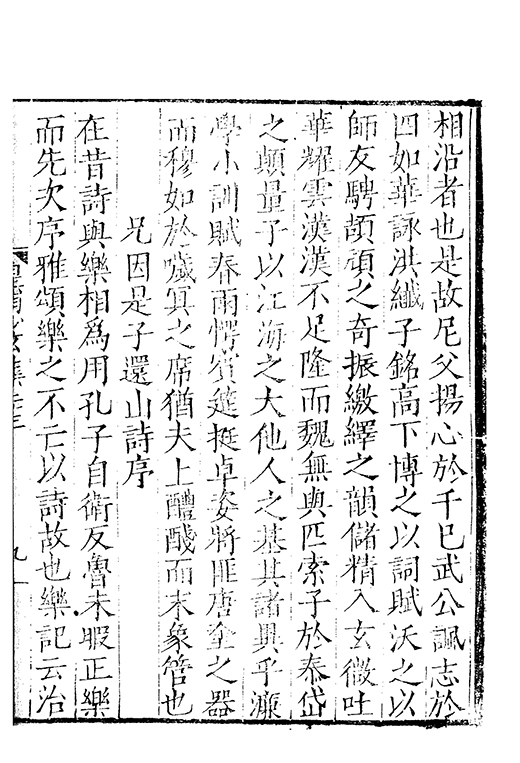 相沿者也是故尼父揚心於千巳武公諷志於
四如華詠洪纖子銘高下博之以詞賦沃之以
師友騁頡頏之奇振繳繹之韻儲精入玄微吐
華耀雲漢漢不足隆而魏無與匹索子於泰岱
之顛量子以江海之大他人之基其諸異乎濂
學小訓賦春雨愕賓筵挺卓姿將匪唐奎之器
而穆如於噦冥之席猶夫上醴醆而末象管也
兄因是子還山詩序
在昔詩與樂相爲用孔子自衛反魯未暇正樂
而先次序雅頌樂之不亡以詩故也樂記云治
九